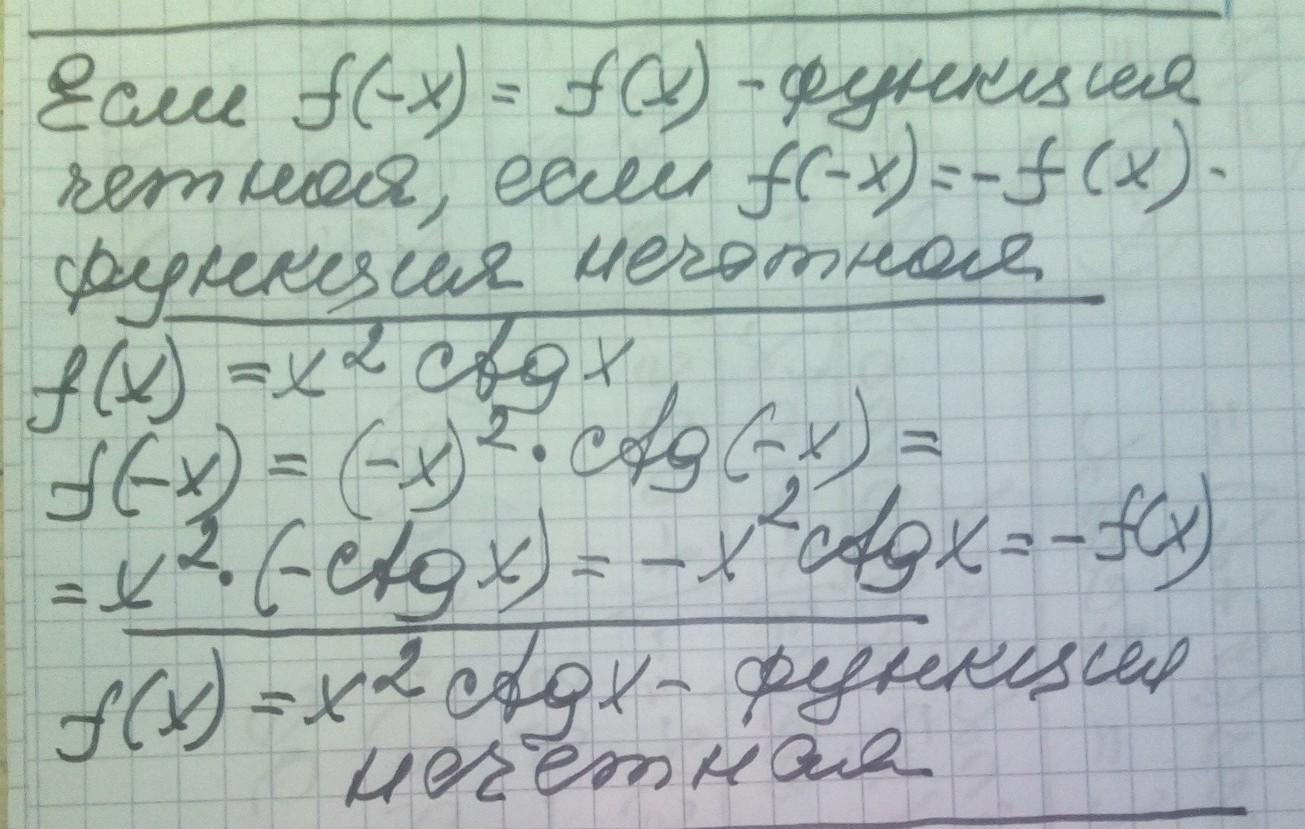 Если f(-x) = f(x) - функция
четная, если f(-x) = -f(x) -
функция нечетная
f(x) = x² ctg x
f(-x) = (-x)² · ctg(-x) =
= x² · (-ctg x) = -x² ctg x = -f(x)
f(x) = x² ctg x - функция
нечётная